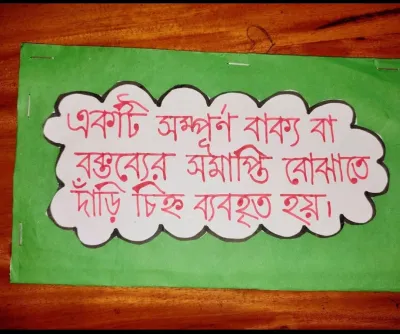 একটি সম্পূর্ন বাক্য বা
বক্তব্যের সমাপ্তি বোঝাতে
দাঁড়ি চিহ্ন ব্যবহৃত হয়।